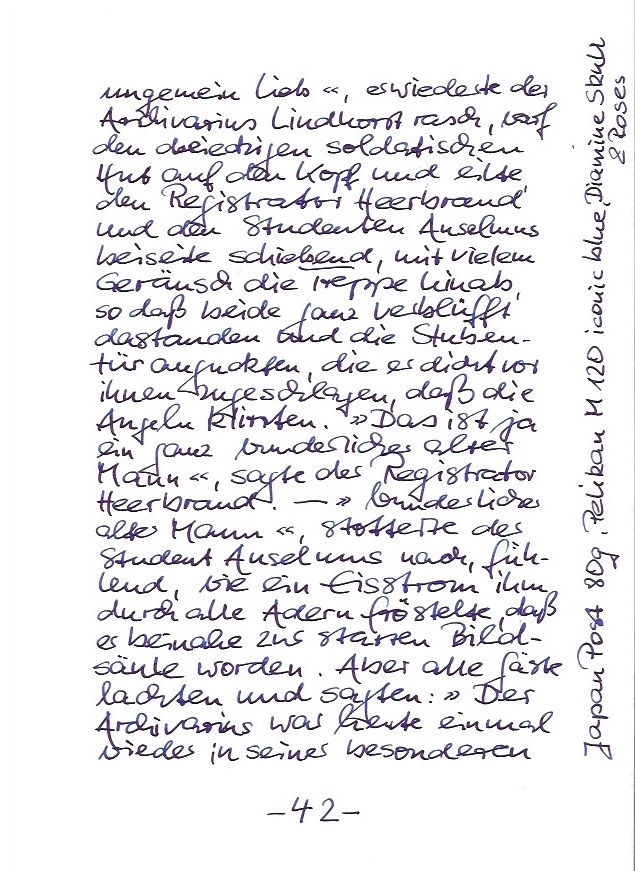 ungemein lieb «, erwiederte der
Archivarius Lindhorst rasch, warf
den dreieckigen soldatischen
Hut auf den Kopf und eilte
den Registrator Heerbrand
und den Studenten Anselmus
beiseite schiebend, mit vielem
Geräusch die Treppe hinab,
so daß beide ganz verblüfft
dastanden und die Stuben-
tür anguckten, die er dicht vor
ihnen zugeschlagen, daß die
Angeln klirrten. » Das ist ja
ein ganz wunderlicher alter
Mann «, sagte der Registrator
Heerbrand. — » Wunderlicher
alter Mann «, stotterte der
Student Anselmus nach, füh-
lend, wie ein Eisstrom ihm
durch alle Adern fröstelte, daß
er beinahe zur starren Bild-
säule worden. Aber alle Gäste
lachten und sagten: » Der
Archivarius war heute einmal
wieder in seiner besonderen
- 42 -
Japan Post 80g, Pelikan M 120 iconic blue, Diamine Skull
& Roses